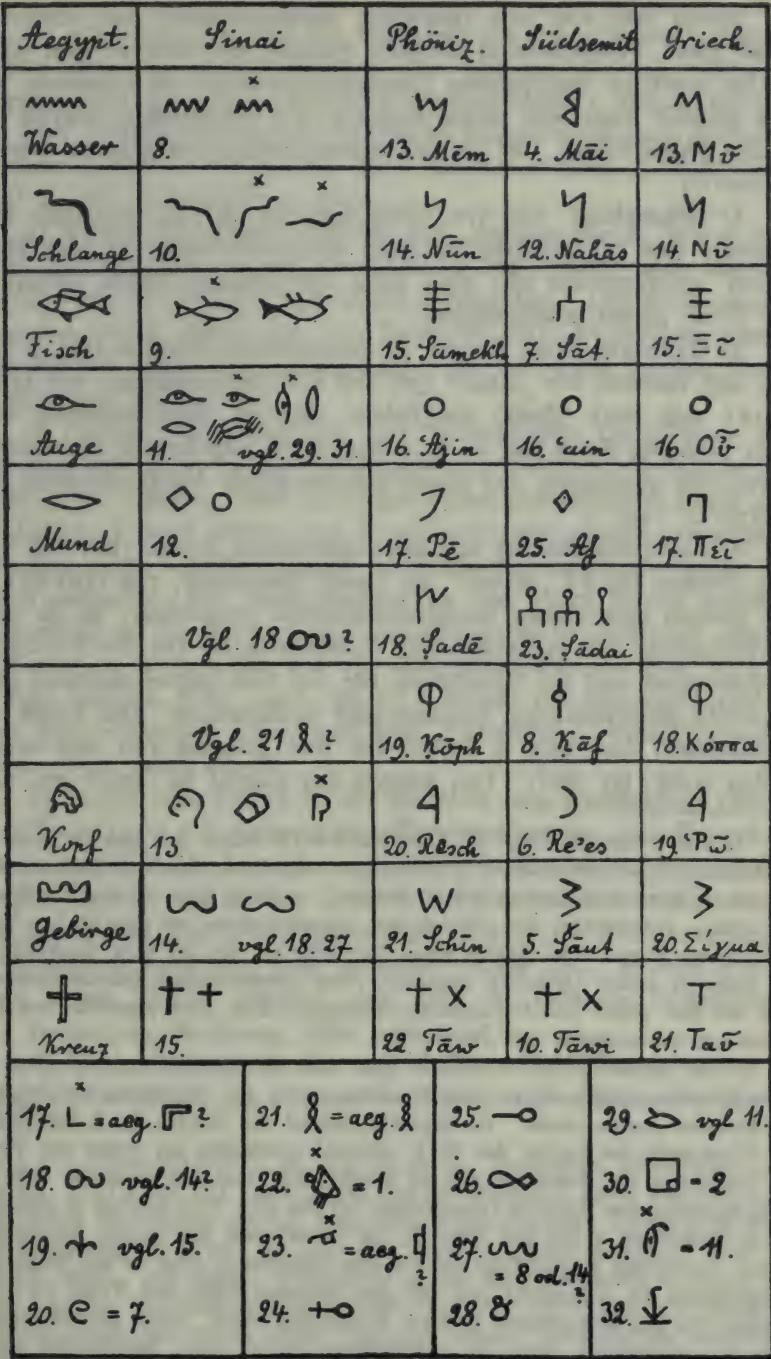 Aegypt. Sinai Phöniz. Südsemit Griech.
Wasser 8. 13. Mēm 4. Māi 13. Μῦ
Schlange 10. 14. Nūn 12. Nahās 14 Νῦ
Fisch 9. 15. Sāmekh 7. Sāt. 15. Ξῖ
Auge 11. vgl. 29. 31. 16. ʿAjin 16. ʿain 16 Οῦ
Mund 12. 17. Pē 25. Af 17. Πεῖ
Vgl. 18 ? 18. Ṣadē 23. Ṣādai
Vgl. 21 ? 19. Ḳōph 8. Ḳāf 18. Κόππα
Kopf 13 20. Rēsch 6. Reʾes 19. Ῥῶ
Gebirge 14. vgl. 18. 27 21. Schīn 5. Šāut 20. Σίγμα
Kreuz 15. 22 Tāw 10. Tāwi 21. Ταῦ
17. = aeg. ? 21. = aeg. 25. 29. vgl 11.
18. vgl. 14? 22. = 1. 26. 30. = 2
19. vgl. 15. 23. = aeg. ? 27. = 8 od. 14 ? 31. = 11.
20. = 7. 24. 28. 32.